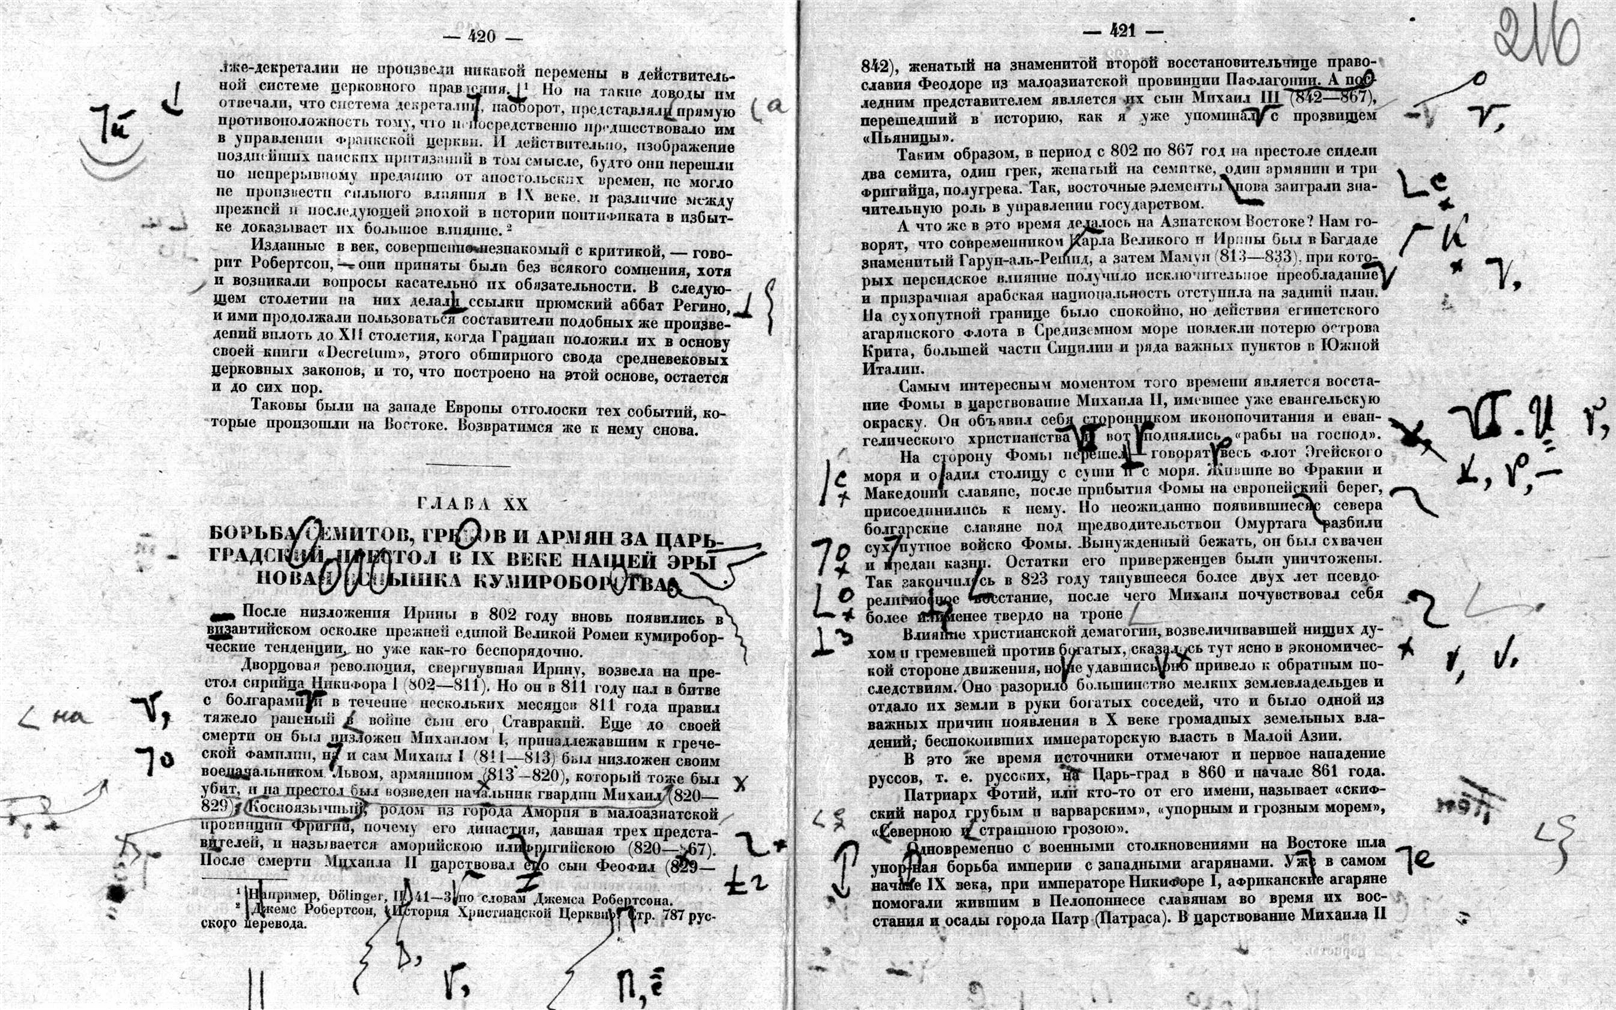 — 420 —
лже-декреталии не произвели никакой перемены в действитель-
ной системе церковного правления.¹ Но на такие доводы им
отвечали, что система декреталий, наоборот, представляла прямую
противоположность тому, что непосредственно предшествовало им
в управлении франкской церкви. И действительно, изображение
позднейших папских притязаний в том смысле, будто они перешли
по непрерывному преданию от апостольских времен, не могло
не произвести сильного влияния в IX веке, и различие между
прежней и последующей эпохой в истории понтификата в избыт-
ке доказывает их большое влияние.²
Изданные в век, совершенно незнакомый с критикой, — гово-
рит Робертсон, — они приняты были без всякого сомнения, хотя
и возникали вопросы касательно их обязательности. В следую-
щем столетии на них делал ссылки прюмский аббат Регино,
и ими продолжали пользоваться составители подобных же произве-
дений вплоть до XII столетия, когда Грациан положил их в основу
своей книги «Decretum», этого обширного свода средневековых
церковных законов, и то, что построено на этой основе, остается
и до сих пор.
Таковы были на западе Европы отголоски тех событий, ко-
торые произошли на Востоке. Возвратимся же к нему снова.
ГЛАВА XX
БОРЬБА СЕМИТОВ, ГРЕКОВ И АРМЯН ЗА ЦАРЬ-
ГРАДСКИЙ ПРЕСТОЛ В IX ВЕКЕ НАШЕЙ ЭРЫ
НОВАЯ ВСПЫШКА КУМИРОБОРСТВА
После низложения Ирины в 802 году вновь появились в
византийском осколке прежней единой Великой Ромеи кумиробор-
ческие тенденции, но уже как-то беспорядочно.
Дворцовая революция, свергнувшая Ирину, возвела на пре-
стол сирийца Никифора I (802—811). Но он в 811 году пал в битве
с болгарами и в течение нескольких месяцев 811 года правил
тяжело раненый в войне сын его Ставракий. Еще до своей
смерти он был низложен Михаилом I, принадлежавшим к грече-
ской фамилии, но и сам Михаил I (811—813) был низложен своим
военачальником Львом, армянином (813—820), который тоже был
убит, и на престол был возведен начальник гвардии Михаил (820—
829) (Косноязычный), родом из города Амория в малоазиатской
провинции Фригии, почему его династия, давшая трех предста-
вителей, и называется аморийскою или фригийскою (820—867).
После смерти Михаила II царствовал его сын Феофил (829—
¹ Например, Dölinger, II, 41—3, по словам Джемса Робертсона.
² Джемс Робертсон, История Христианской Церкви, Стр. 787 рус-
ского перевода.
— 421 —
216
842), женатый на знаменитой второй восстановительнице право-
славия Феодоре из малоазиатской провинции Пафлагонии. А пос-
ледним представителем является их сын Михаил III (842—867),
перешедший в историю, как я уже упоминал, с прозвищем
«Пьяницы».
Таким образом, в период с 802 по 867 год на престоле сидели
два семита, один грек, женатый на семитке, один армянин и три
фригийца, полугрека. Так, восточные элементы снова заиграли зна-
чительную роль в управлении государством.
А что же в это время делалось на Азиатском Востоке? Нам го-
ворят, что современником Карла Великого и Ирины был в Багдаде
знаменитый Гарун-аль-Решид, а затем Мамун (813—833), при кото-
рых персидское влияние получило исключительное преобладание
и призрачная арабская национальность отступила на задний план.
На сухопутной границе было спокойно, но действия египетского
агарянского флота в Средиземном море повлекли потерю острова
Крита, большей части Сицилии и ряда важных пунктов в Южной
Италии.
Самым интересным моментом того времени является восста-
ние Фомы в царствование Михаила II, имевшее уже евангельскую
окраску. Он объявил себя сторонником иконопочитания и еван-
гелического христианства и вот поднялись «рабы на господ».
На сторону Фомы перешел говорят весь флот Эгейского
моря и осадил столицу с суши и с моря. Жившие во Фракии и
Македонии славяне, после прибытия Фомы на европейский берег,
присоединились к нему. Но неожиданно появившиеся с севера
болгарские славяне под предводительством Омуртага разбили
сухопутное войско Фомы. Вынужденный бежать, он был схвачен
и предан казни. Остатки его приверженцев были уничтожены.
Так закончилось в 823 году тянувшееся более двух лет псевдо-
религиозное восстание, после чего Михаил почувствовал себя
более или менее твердо на троне
Влияние христианской демагогии, возвеличивавшей нищих ду-
хом и гремевшей против богатых, сказалось тут ясно в экономичес-
кой стороне движения, но не удавшись, оно привело к обратным по-
следствиям. Оно разорило большинство мелких землевладельцев и
отдало их земли в руки богатых соседей, что и было одной из
важных причин появления в X веке громадных земельных вла-
дений, беспокоивших императорскую власть в Малой Азии.
В это же время источники отмечают и первое нападение
руссов, т. е. русских, на Царь-град в 860 и начале 861 года.
Патриарх Фотий, или кто-то от его имени, называет «скиф-
ский народ грубым и варварским», «упорным и грозным морем»,
«Северною и страшною грозою».
Одновременно с военными столкновениями на Востоке шла
упорная борьба империи с западными агарянами. Уже в самом
начале IX века, при императоре Никифоре I, африканские агаряне
помогали жившим в Пелопоннесе славянам во время их вос-
стания и осады города Патр (Патраса). В царствование Михаила II